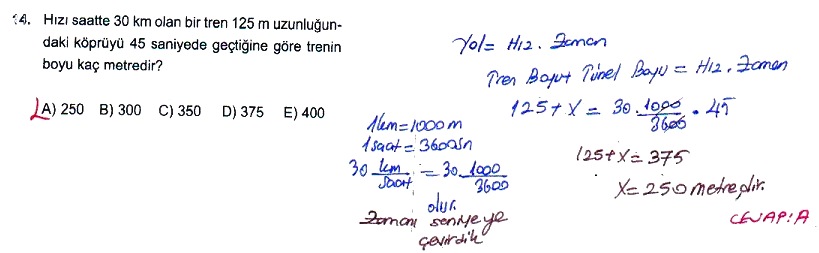 14. Hızı saatte 30 km olan bir tren 125 m uzunluğun-
daki köprüyü 45 saniyede geçtiğine göre trenin
boyu kaç metredir?
A) 250 B) 300 C) 350 D) 375 E) 400
1km=1000m
1saat=3600sn
30 km/saat = 30.1000/3600
olur.
Zamanı saniyeye
çevirdik
Yol= Hız. Zaman
Tren Boyu+Tünel Boyu = Hız. Zaman
125+x = 30.1000/3600 . 45
125+x=375
x=250 metredir.
CEVAP:A